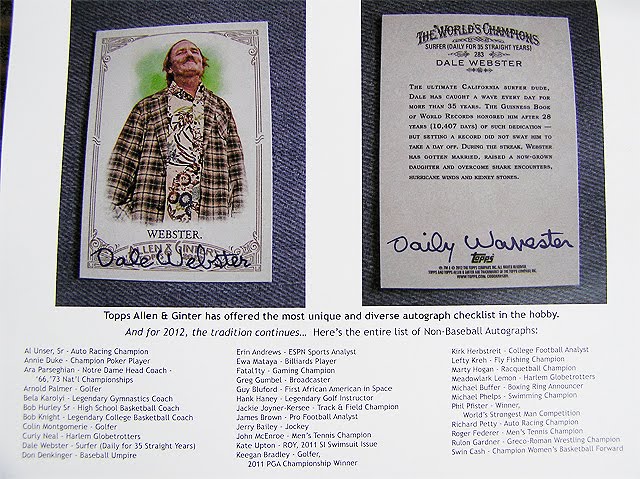 WEBSTER.
ALLEN & GINTER
Dale Webster
THE WORLD'S CHAMPIONS
SURFER (DAILY FOR 35 STRAIGHT YEARS)
283
DALE WEBSTER
THE ULTIMATE CALIFORNIA SURFER DUDE,
DALE HAS CAUGHT A WAVE EVERY DAY FOR
MORE THAN 35 YEARS. THE GUINNESS BOOK
OF WORLD RECORDS HONORED HIM AFTER 28
YEARS (10,407 DAYS) OF SUCH DEDICATION —
BUT SETTING A RECORD DID NOT SWAY HIM TO
TAKE A DAY OFF. DURING THE STREAK, WEBSTER
HAS GOTTEN MARRIED, RAISED A NOW-GROWN
DAUGHTER AND OVERCOME SHARK ENCOUNTERS,
HURRICANE WINDS AND KIDNEY STONES.
Daily Wavester
Topps
Topps Allen & Ginter has offered the most unique and diverse autograph checklist in the hobby.
And for 2012, the tradition continues... Here's the entire list of Non-Baseball Autographs:
Al Unser, Sr - Auto Racing Champion
Annie Duke - Champion Poker Player
Ara Parseghian - Notre Dame Head Coach -
'66,'73 Nat'l Championships
Arnold Palmer - Golfer
Bela Karolyi - Legendary Gymnastics Coach
Bob Hurley Sr - High School Basketball Coach
Bob Knight - Legendary College Basketball Coach
Colin Montgomerie - Golfer
Curly Neal - Harlem Globetrotters
Dale Webster - Surfer (Daily for 35 Straight Years)
Don Denkinger - Baseball Umpire
Erin Andrews - ESPN Sports Analyst
Ewa Mataya - Billiards Player
Fatal1ty - Gaming Champion
Greg Gumbel - Broadcaster
Guy Bluford - First African American in Space
Hank Haney - Legendary Golf Instructor
Jackie Joyner-Kersee - Track & Field Champion
James Brown - Pro Football Analyst
Jerry Bailey - Jockey
John McEnroe - Men's Tennis Champion
Kate Upton - ROY, 2011 SI Swimsuit Issue
Keegan Bradley - Golfer,
2011 PGA Championship Winner
Kirk Herbstreit - College Football Analyst
Lefty Kreh - Fly Fishing Champion
Marty Hogan - Racquetball Champion
Meadowlark Lemon - Harlem Globetrotters
Michael Buffer - Boxing Ring Announcer
Michael Phelps - Swimming Champion
Phil Pfister - Winner,
World's Strongest Man Competition
Richard Petty - Auto Racing Champion
Roger Federer - Men's Tennis Champion
Rulon Gardner - Greco-Roman Wrestling Champion
Swin Cash - Champion Women's Basketball Forward